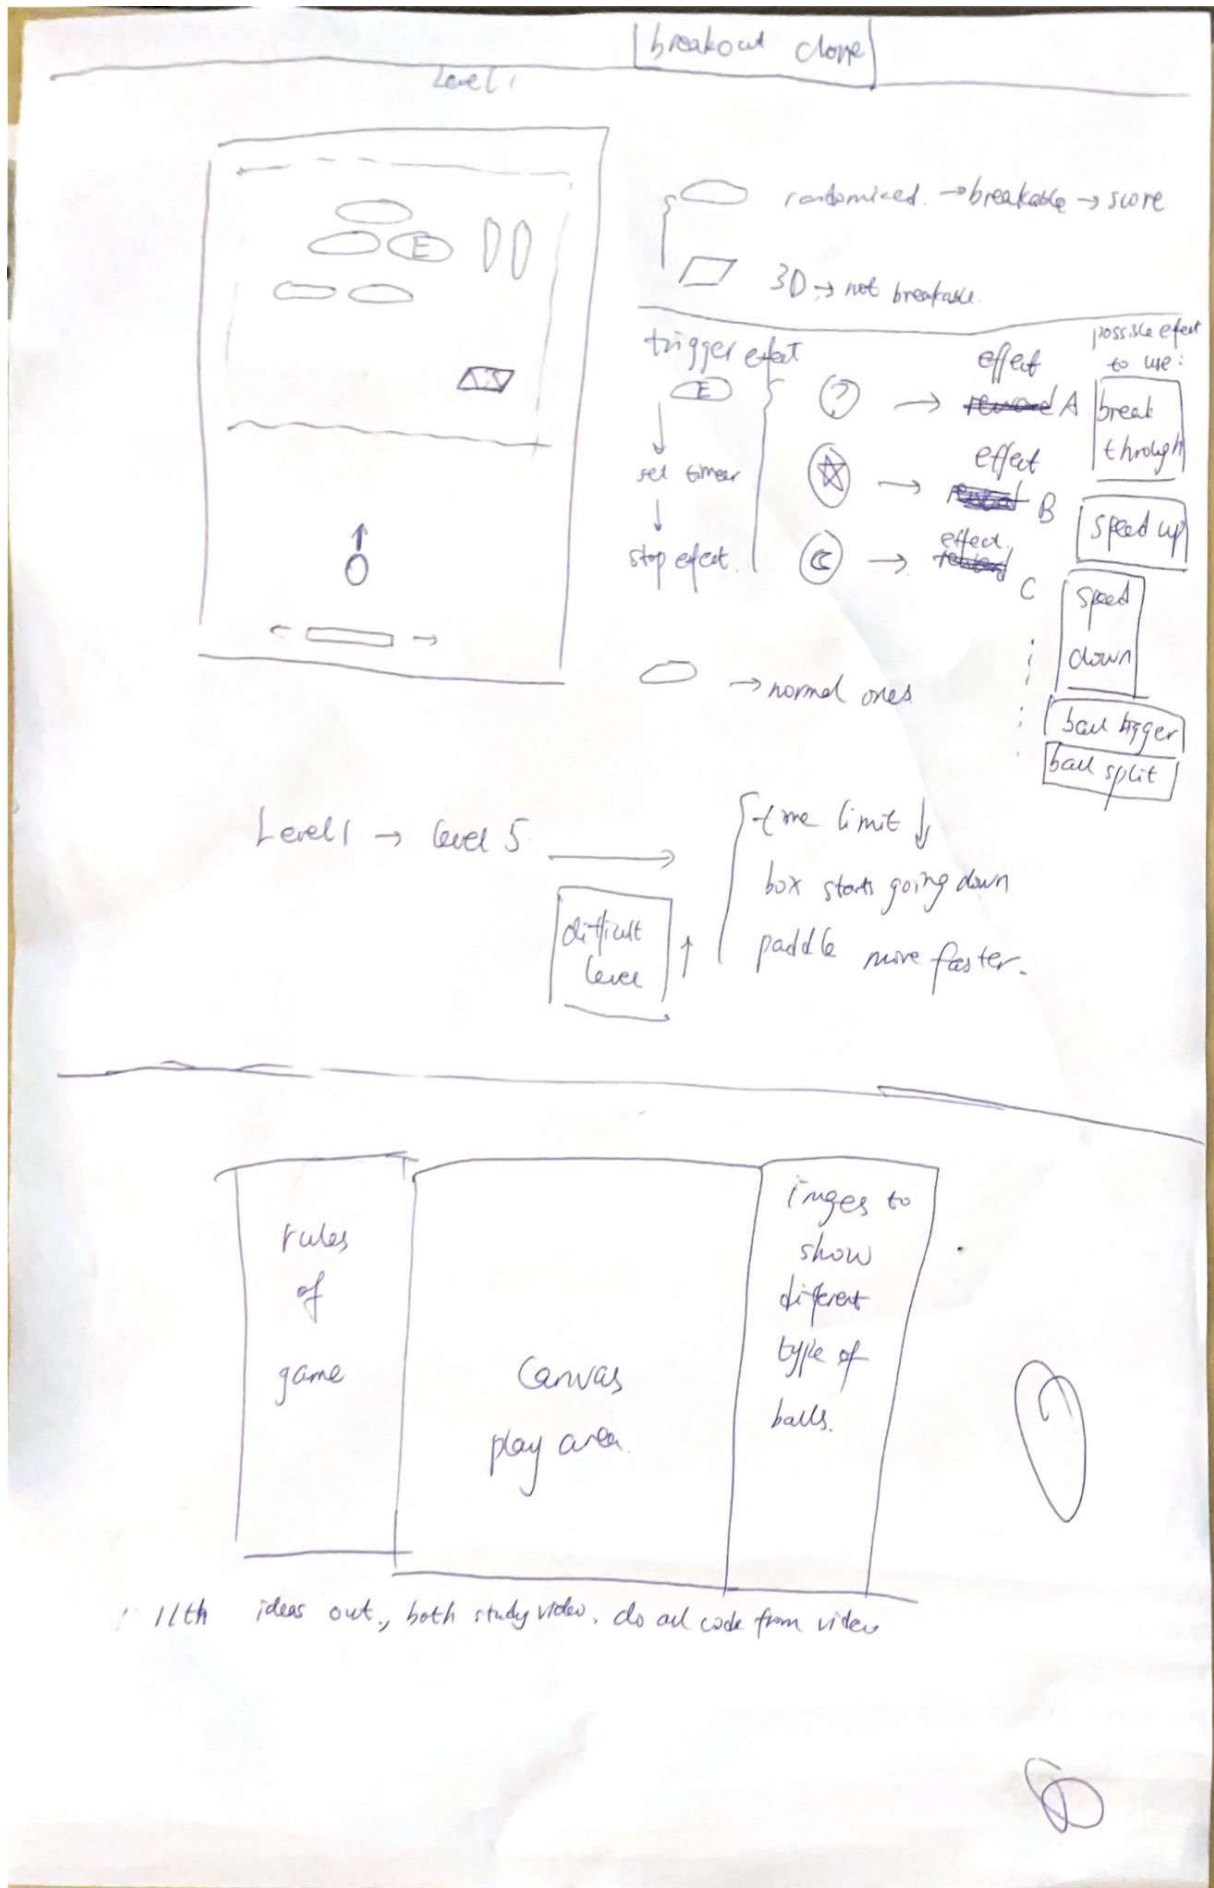 breakout clone
Level 1
E
randomized → breakable → score
3D → not breakable.
possible efect
to use:
trigger efect
E
↓
set timer
↓
stop efect.
? → effect A
→ effect B
→ effect. C
break
through
speed up
speed
down
ball bigger
ball split
→ normal ones
Level 1 → level 5
difficult
level ↑
time limit ↓
box starts going down
paddle move faster.
rules
of
game
Canvas
play area.
imges to
show
different
type of
balls.
11th ideas out., both study video. do all code from video